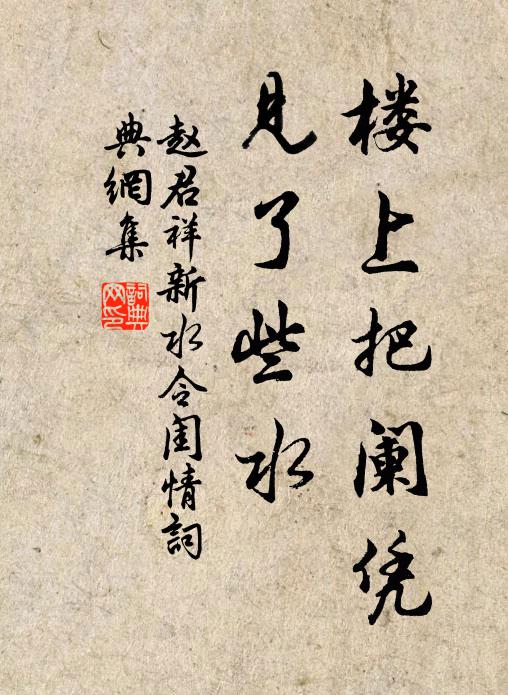 楼上把阑凭
见了些水
赵君祥新水令闺情词
典網集
詞典網印